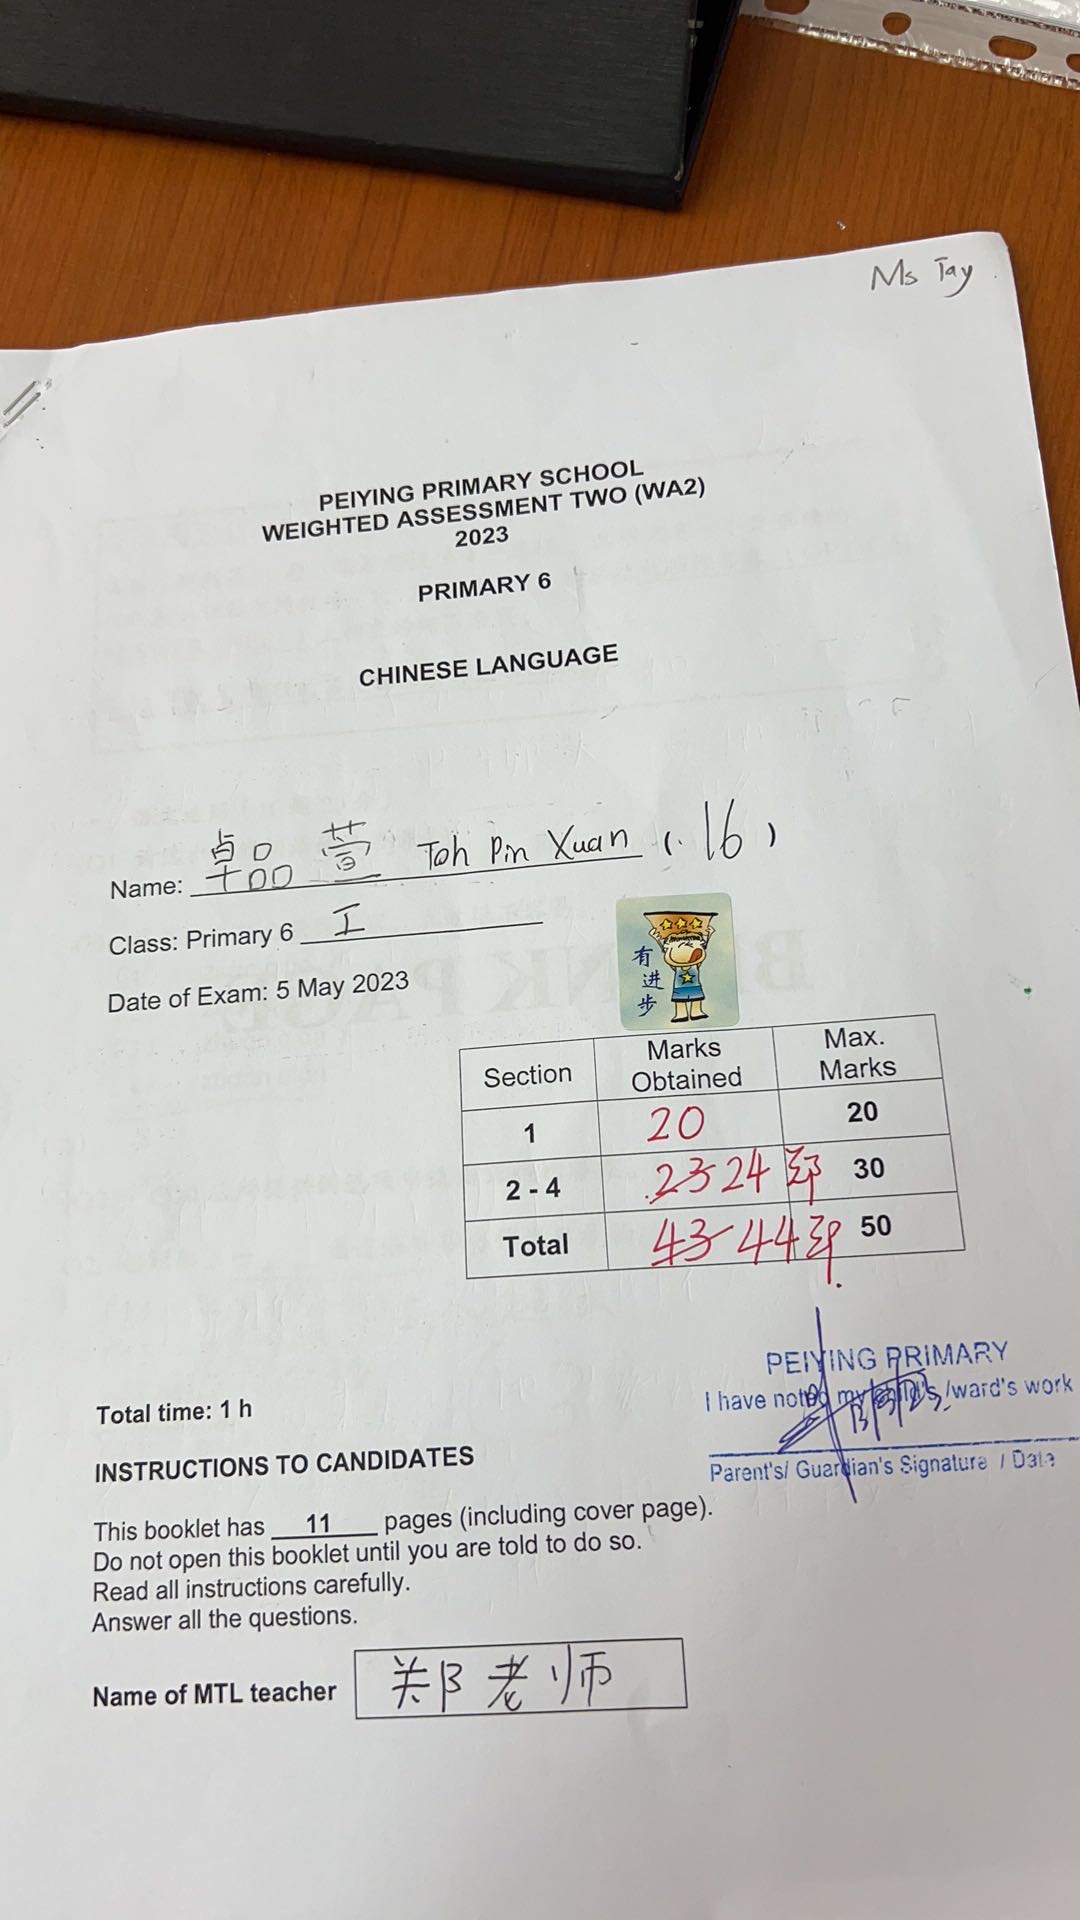 Ms Tay
PEIYING PRIMARY SCHOOL
WEIGHTED ASSESSMENT TWO (WA2)
2023
PRIMARY 6
CHINESE LANGUAGE
Name: 卓品萱 Toh Pin Xuan (16)
Class: Primary 6 I
Date of Exam: 5 May 2023
有进步
Section Marks Obtained Max. Marks
1 20 20
2 - 4 23 24 30
Total 43 44 50
PEIYING PRIMARY
I have noted my child's /ward's work
Parent's/ Guardian's Signature / Date
Total time: 1 h
INSTRUCTIONS TO CANDIDATES
This booklet has 11 pages (including cover page).
Do not open this booklet until you are told to do so.
Read all instructions carefully.
Answer all the questions.
Name of MTL teacher 郑老师